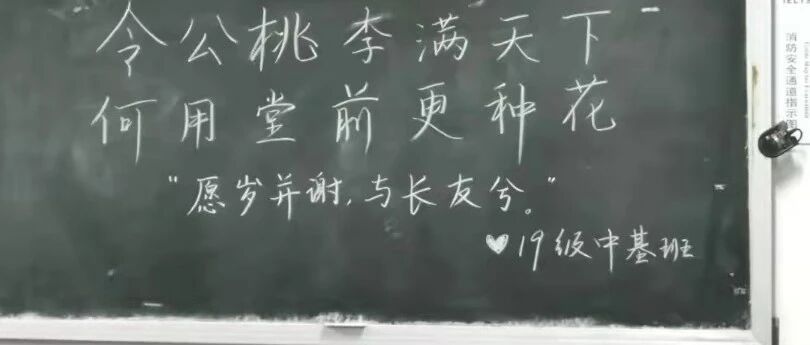 令公桃李满天下
何用堂前更种花
"愿岁并谢，与长友兮。"
♥19级中基班
消防安全通道指示图